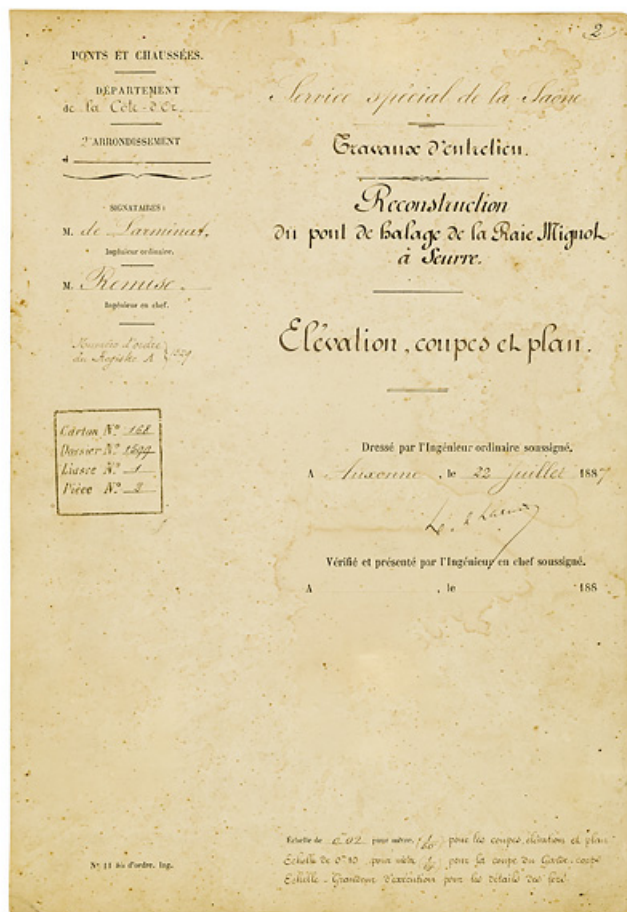 2
PONTS ET CHAUSSÉES.
DÉPARTEMENT
de la Côte-d'Or
2e ARRONDISSEMENT
SIGNATAIRES :
M. de Larminat.
Ingénieur ordinaire.
M. Remise.
Ingénieur en chef.
Numéro d'ordre
du Registre A
Carton N° 168
Dossier N° 1599
Liasse N° 1
Pièce N° 2
N° 11 bis d'ordre. Ing.
Service spécial de la Saône
Travaux d'entretien.
Reconstruction
du pont de halage de la Raie Mignot
à Seurre.
Elévation, coupes et plan.
Dressé par l'Ingénieur ordinaire soussigné.
A Auxonne, le 22 juillet 1887
Vérifié et présenté par l'Ingénieur en chef soussigné.
A , le 188
Echelle de 0m02 pour mètre, (1/50) pour les coupes, élévation et plan
Echelle de 0m10 pour mètre (1/10) pour la coupe du Garde-corps
Echelle - Grandeur d'exécution pour les détails des fers.